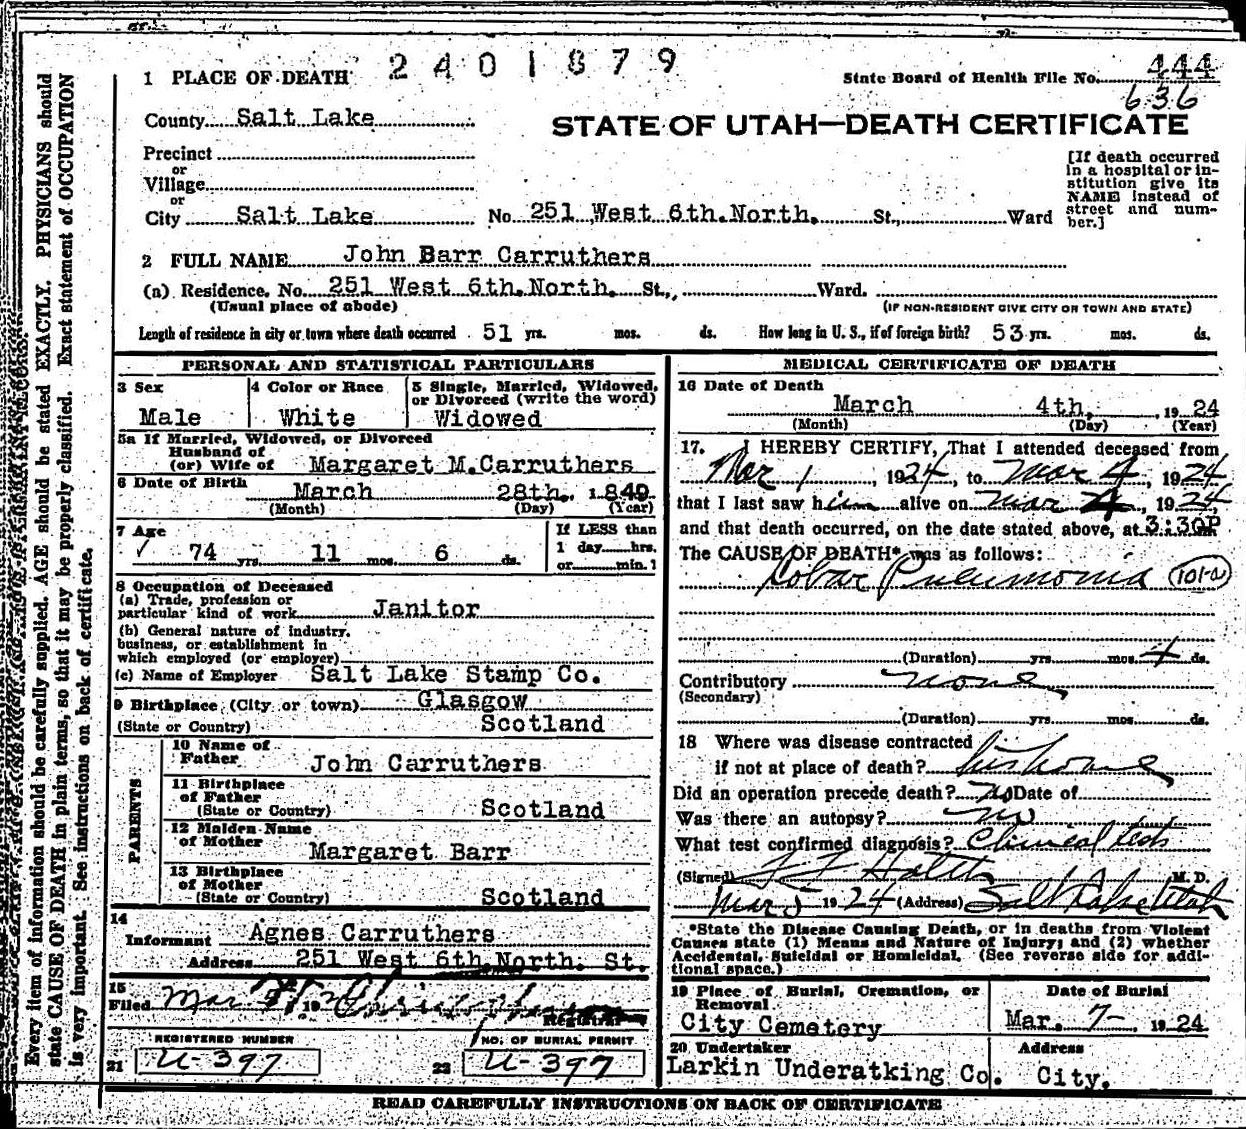 2401879
1 PLACE OF DEATH
State Board of Health File No. 444
636
County Salt Lake
STATE OF UTAH—DEATH CERTIFICATE
Precinct
or
Village
or
City Salt Lake No. 251 West 6th. North. St., Ward
[If death occurred in a hospital or in-
stitution give its
NAME instead of
street and num-
ber.]
2 FULL NAME John Barr Carruthers
(a) Residence. No. 251 West 6th. North. St., Ward.
(Usual place of abode) (IF NON-RESIDENT GIVE CITY OR TOWN AND STATE)
Length of residence in city or town where death occurred 51 yrs. mos. ds. How long in U. S., if of foreign birth? 53 yrs. mos. ds.
PERSONAL AND STATISTICAL PARTICULARS
3 Sex
Male
4 Color or Race
White
5 Single, Married, Widowed,
or Divorced (write the word)
Widowed
5a If Married, Widowed, or Divorced
Husband of
(or) Wife of Margaret M. Carruthers
6 Date of Birth March 28th. 1849
(Month) (Day) (Year)
7 Age
74 yrs. 11 mos. 6 ds.
If LESS than
1 day hrs.
or min.
8 Occupation of Deceased
(a) Trade, profession or
particular kind of work Janitor
(b) General nature of industry,
business, or establishment in
which employed (or employer)
(c) Name of Employer Salt Lake Stamp Co.
9 Birthplace (City or town) Glasgow
(State or Country) Scotland
PARENTS
10 Name of
Father John Carruthers
11 Birthplace
of Father
(State or Country) Scotland
12 Maiden Name
of Mother Margaret Barr
13 Birthplace
of Mother
(State or Country) Scotland
14
Informant Agnes Carruthers
Address 251 West 6th North. St.
15
Filed Mar 19
Registrar
REGISTERED NUMBER
21 U-397
NO. OF BURIAL PERMIT
22 U-397
MEDICAL CERTIFICATE OF DEATH
16 Date of Death
March 4th, 1924
(Month) (Day) (Year)
17. I HEREBY CERTIFY, That I attended deceased from
Mar 1, 1924, to Mar 4, 1924
that I last saw him alive on Mar 4, 1924,
and that death occurred, on the date stated above, at 3:30P
The CAUSE OF DEATH* was as follows:
Lobar Pneumonia 101-a
(Duration) yrs. mos. 4 ds.
Contributory none
(Secondary)
(Duration) yrs. mos. ds.
18 Where was disease contracted
if not at place of death? his home
Did an operation precede death? no Date of
Was there an autopsy? no
What test confirmed diagnosis? Clinical tests
(Signed) M. D.
Mar 5 1924 (Address) Salt Lake Utah
*State the Disease Causing Death, or in deaths from Violent
Causes state (1) Means and Nature of Injury; and (2) whether
Accidental, Suicidal or Homicidal. (See reverse side for addi-
tional space.)
19 Place of Burial, Cremation, or
Removal
City Cemetery
Date of Burial
Mar. 7- 1924
20 Undertaker
Larkin Underatking Co.
Address
City.
READ CAREFULLY INSTRUCTIONS ON BACK OF CERTIFICATE
Every item of information should be carefully supplied. AGE should be stated EXACTLY. PHYSICIANS should
state CAUSE OF DEATH in plain terms, so that it may be properly classified. Exact statement of OCCUPATION
is very important. See instructions on back of certificate.